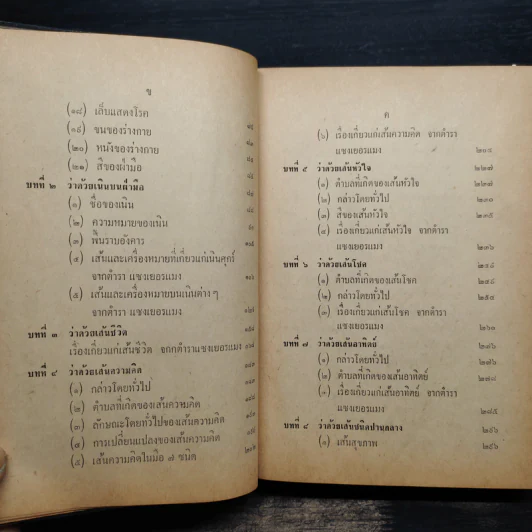 ข
(๑๘) เล็บแสดงโรค
(๑๙) ขนของร่างกาย
(๒๐) หนังของร่างกาย
(๒๑) สีของฝ่ามือ
บทที่ ๒ ว่าด้วยเนินบนฝ่ามือ
(๑) ชื่อของเนิน
(๒) ความหมายของเนิน
(๓) พื้นราบอังคาร
(๔) เส้นและเครื่องหมายที่เกี่ยวแก่เนินศุกร์
จากตำรา แซงเยอรแมง
(๕) เส้นและเครื่องหมายบนเนินต่าง ๆ
จากตำรา แซงเยอรแมง
บทที่ ๓ ว่าด้วยเส้นชีวิต
เรื่องเกี่ยวแก่เส้นชีวิต จากตำราแซงเยอรแมง
บทที่ ๔ ว่าด้วยเส้นความคิด
(๑) กล่าวโดยทั่วไป
(๒) ตำบลที่เกิดของเส้นความคิด
(๓) ลักษณะโดยทั่วไปของเส้นความคิด
(๔) การเปลี่ยนแปลงของเส้นความคิด
(๕) เส้นความคิดในมือ ๗ ชนิด
ค
(๖) เรื่องเกี่ยวแก่เส้นความคิด จากตำรา
แซงเยอรแมง
บทที่ ๕ ว่าด้วยเส้นหัวใจ ๒๒๗
(๑) ตำบลที่เกิดของเส้นหัวใจ ๒๒๗
(๒) กล่าวโดยทั่วไป
(๓) สีของเส้นหัวใจ ๒๓๕
(๔) เรื่องเกี่ยวแก่เส้นหัวใจ จากตำรา
แซงเยอรแมง ๒๓๖
บทที่ ๖ ว่าด้วยเส้นโชค ๒๔๘
(๑) ตำบลที่เกิดของเส้นโชค ๒๔๘
(๒) กล่าวโดยทั่วไป
(๓) เรื่องเกี่ยวแก่เส้นโชค จากตำรา
แซงเยอรแมง
บทที่ ๗ ว่าด้วยเส้นอาทิตย์ ๒๗๖
(๑) กล่าวโดยทั่วไป ๒๗๖
(๒) ตำบลที่เกิดของเส้นอาทิตย์
(๓) เรื่องเกี่ยวแก่เส้นอาทิตย์ จากตำรา
แซงเยอรแมง ๒๘๕
บทที่ ๘ ว่าด้วยเส้นชนิดปานกลาง ๒๙๖
(๑) เส้นสุขภาพ ๒๙๖